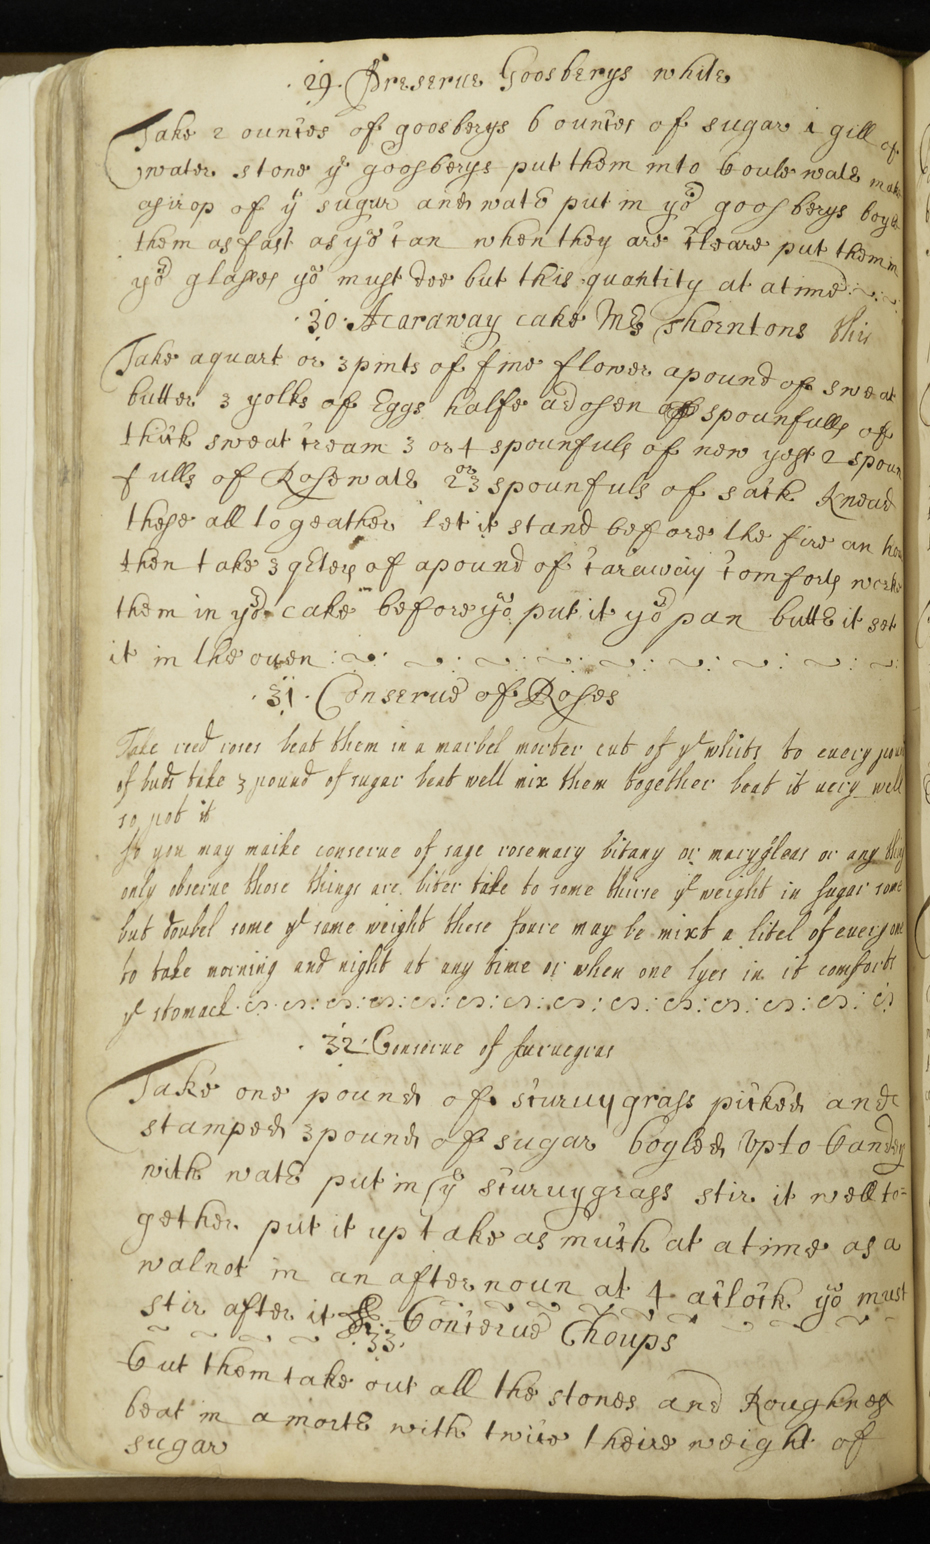 29. Preserue Goosberys white
Take 2 ounces of goosberys 6 ounces of sugar 1 gill of
water stone ye goosberys put them into Could water make
asirop of ye sugur and water put in yor goosberys boyle
them as fast as yo can when they are cleare put them in
yor glasses yo must doe but this quantity at atime
30. A caraway cake Mrs Thorntons this
Take aquart or 3 pints of fine flower apound of sweat
butter 3 yolks of Eggs halfe adosen of spounfulls of
thick sweat cream 3 or 4 spounfuls of new yest 2 spoun
fulls of Rosewater 2 or 3 spounfuls of sack knead
these all to geather let it stand before the fire an hou
then take 3 qrters of apound of caraway comforts worke
them in yor cake before yo put it in yor pan butter it set
it in the ouen
31. Conserue of Roses
Take reed roses beat them in a marbel morter cut of ye whits to euery poun
of buds take 3 pound of sugar beat well mix them together beat it uery well
so pot it
So you may maike conserue of sage rosemary bitany or marygleas or any thing
only obserue those things are biter take to some thirse ye weight in sugar some
but doubel some ye same weight these foure may be mixt a litel of euery one
to take morning and night at any time or when one lyes in it comforts
ye stomack
32. Conserue of suruegras
Take one pound of scuruygrass picked and
stamped 3 pound of sugar boyled vp to Candey
with water put in ye scuruygrass stir it well to=
gether put it up take as much at atime as a
walnot in an afternoun at 4 aclock yo must
stir after it &
33. Conserue Choups
Cut them take out all the stones and Roughnes
beat in amorter with twice theire weight of
sugar